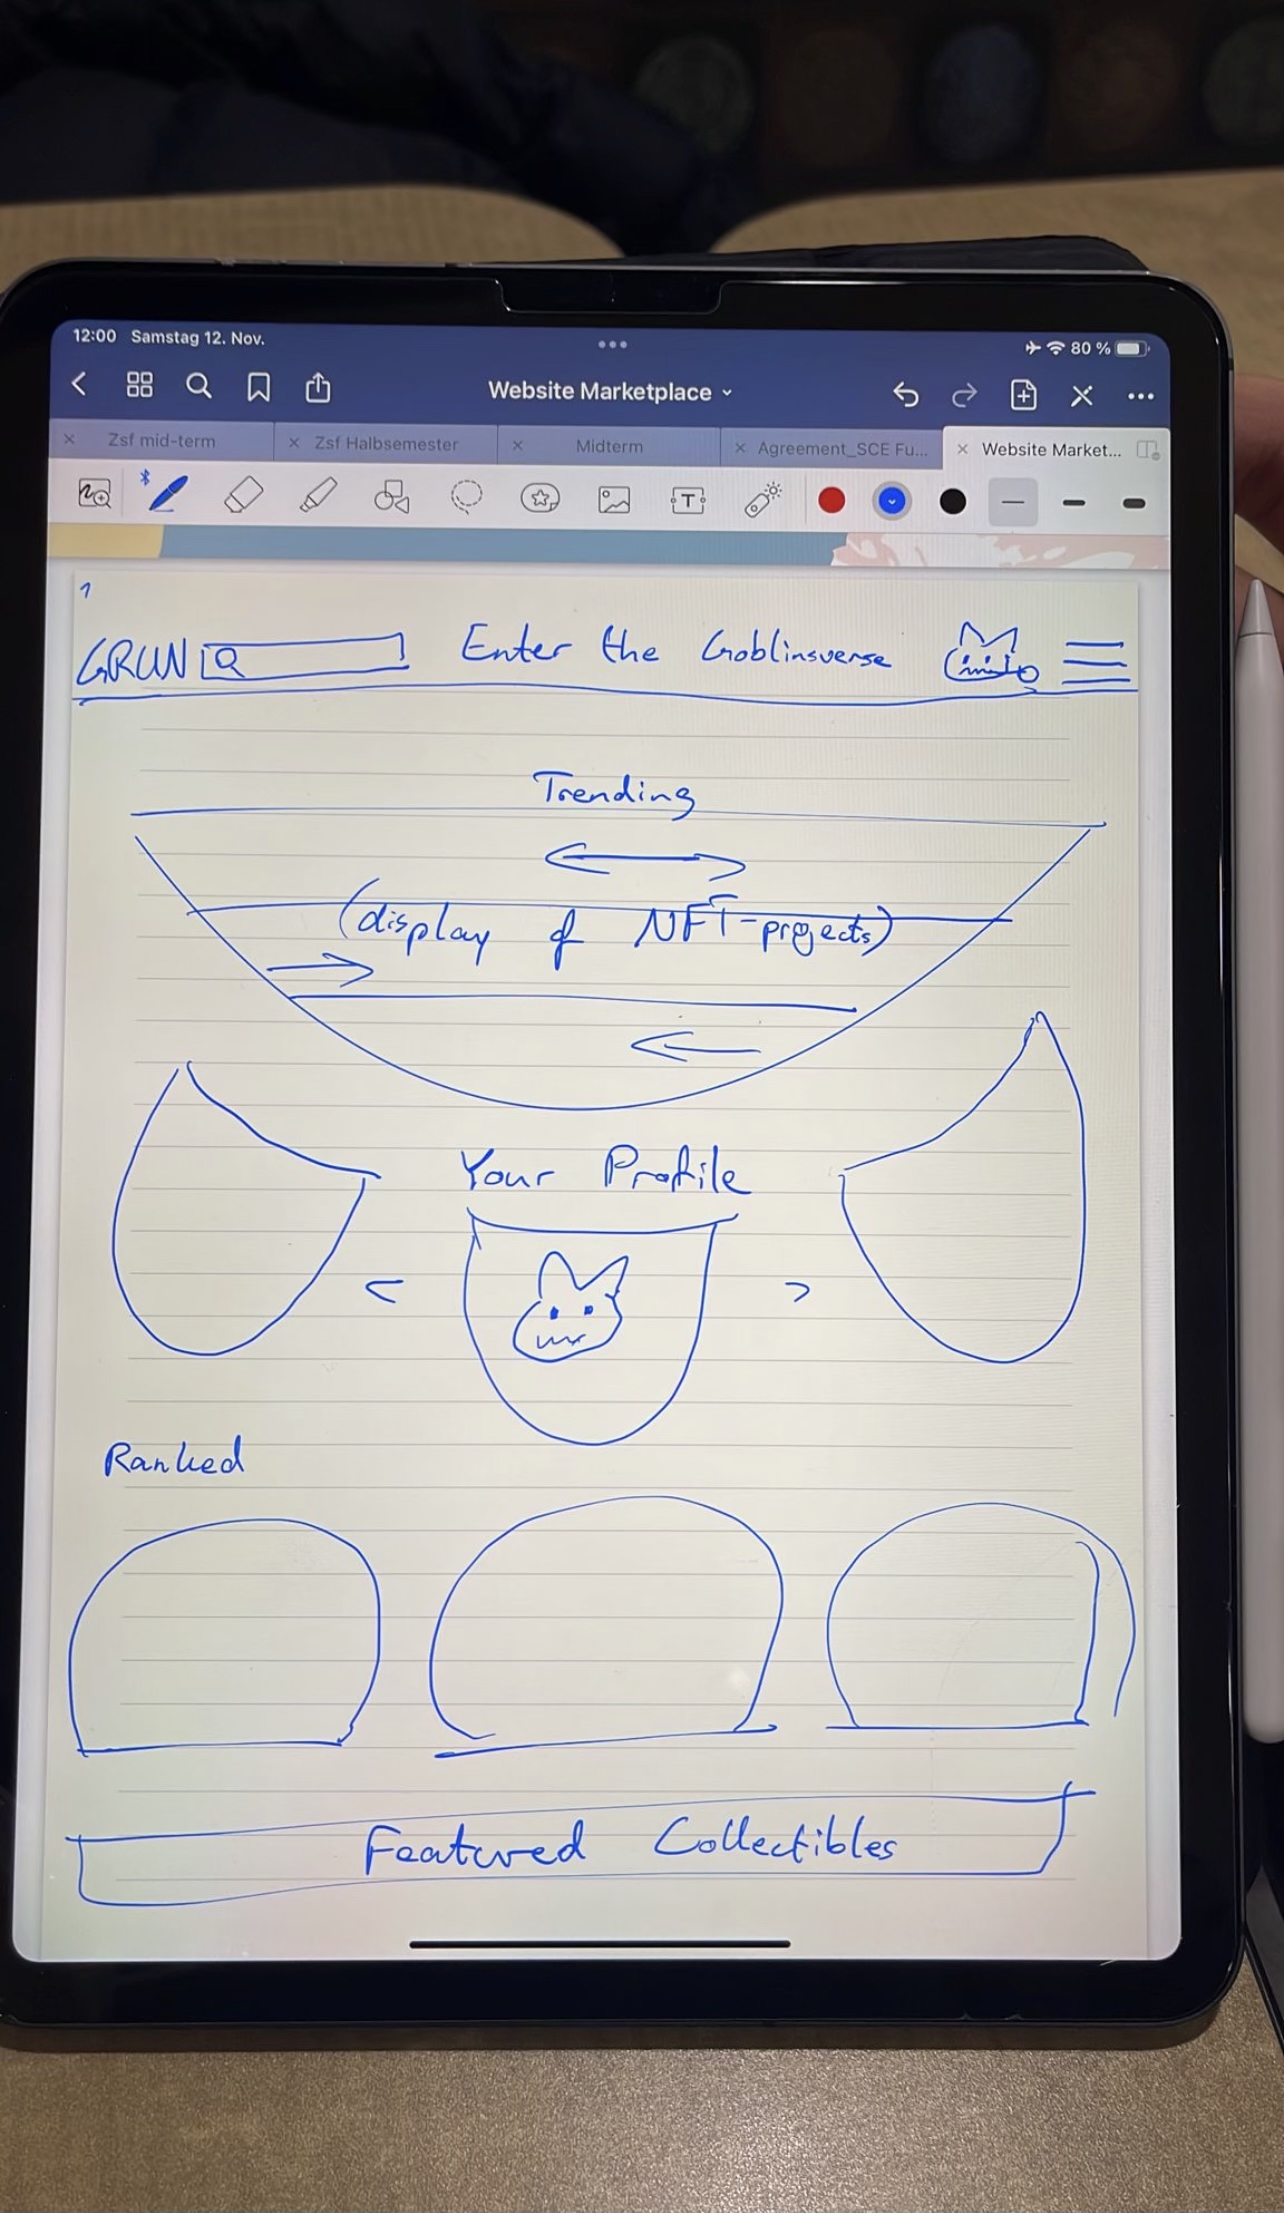 12:00 Samstag 12. Nov.
80 %
Website Marketplace
Zsf mid-term
Zsf Halbsemester
Midterm
Agreement_SCE Fu...
Website Market...
T
1
GRUN Enter the Goblinsverse
Trending
(display of NFT-projects)
Your Profile
< >
Ranked
Featured Collectibles